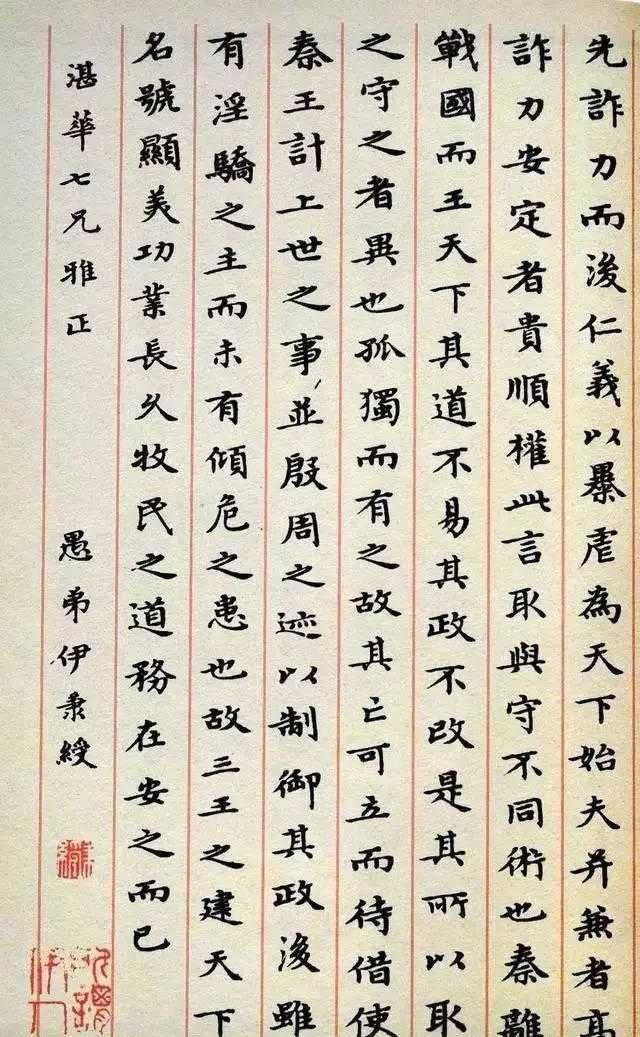 先詐力而後仁義以暴虐為天下始夫并兼者高
詐力安定者貴順權此言取與守不同術也秦離
戰國而王天下其道不易其政不改是其所以取
之守之者異也孤獨而有之故其亡可立而待借使
秦王計上世之事並殷周之迹以制御其政後雖
有淫驕之主而未有傾危之患也故三王之建天下
名號顯美功業長久牧民之道務在安之而已
湛華七兄雅正 愚弟伊秉綬